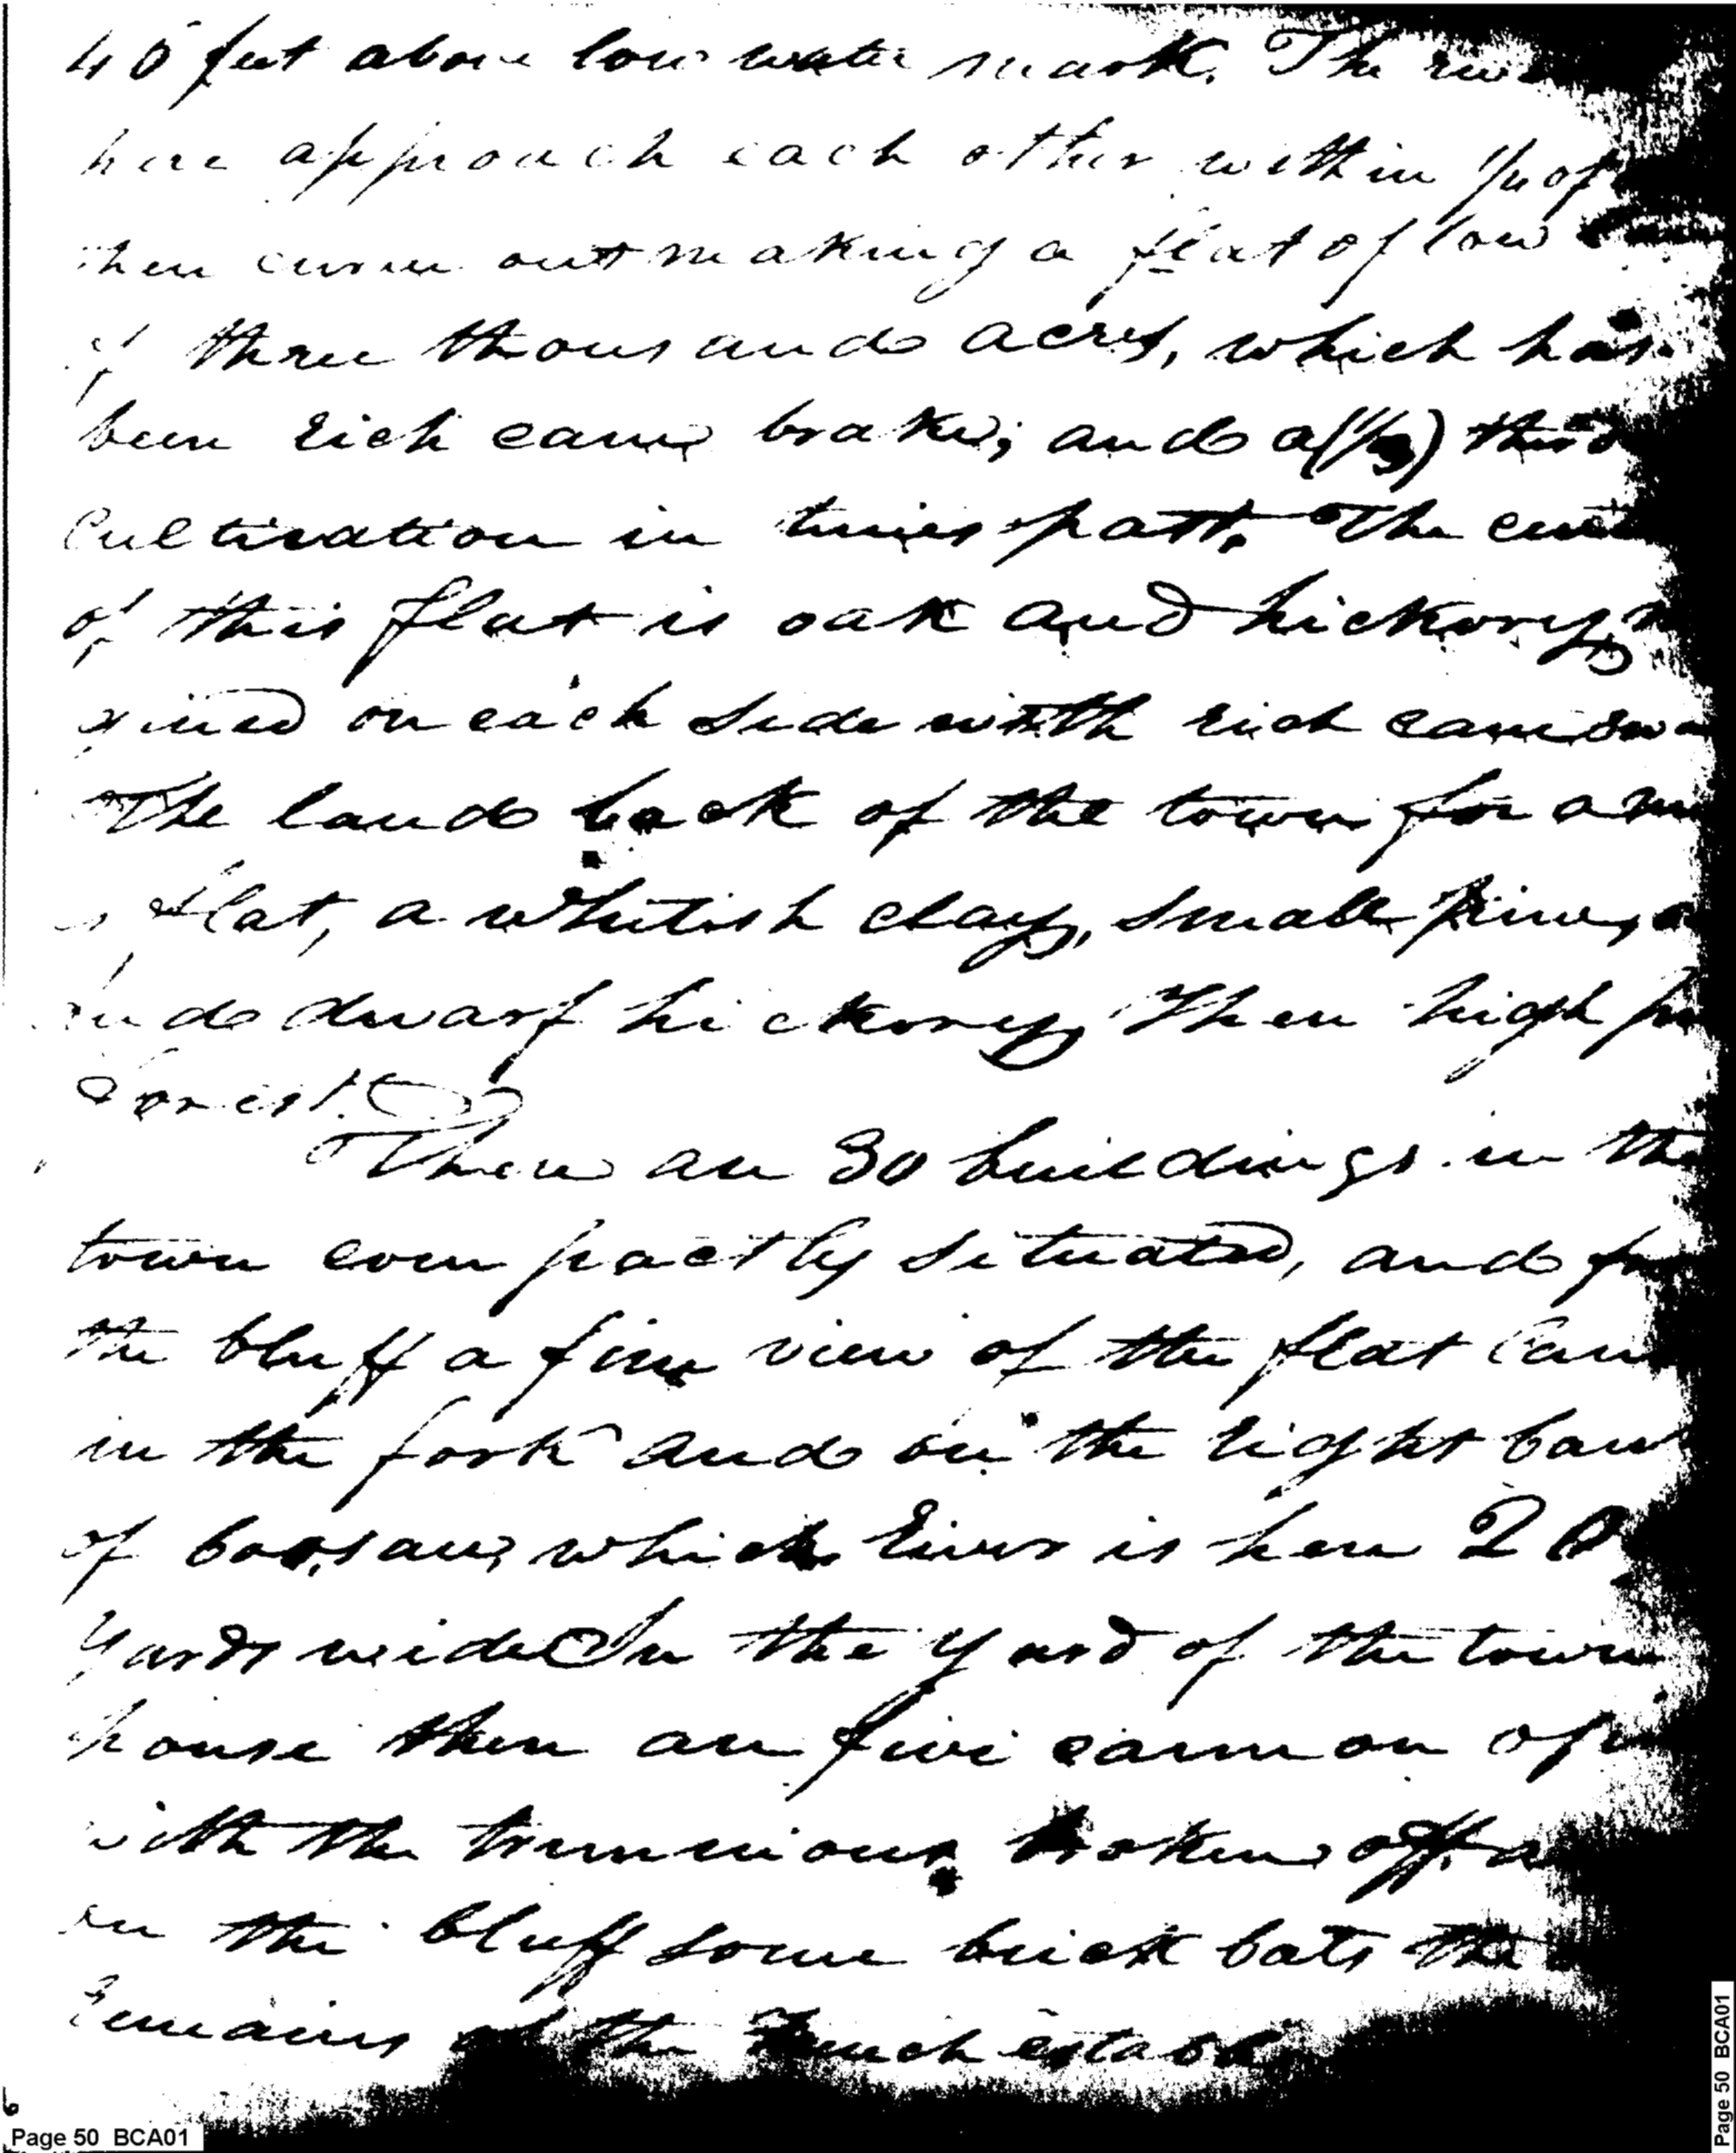 40 feet above low water mark. The
here approach each other within 1/4 of
then curve out making a flat of low
of three thousand acres, which has
been rich cane brake; and a (1/3) third
Cultivation in times past. The
of this flat is oak and hickory,
gined on each side with rich cane
The land back of the town for a
is flat, a whitish clay, small pine,
and dwarf hickory, Then high
Forest.
There are 30 buildings in the
town compactly situated, and
the bluff a fine view of the flat
in the fork and on the right
of Coosau, which river is here
Yards wide In the yard of the town
house there are five cannon of
with the trunnions broken off
on the bluff some brick bats the
Remains of the French
Page 50 BCA01
Page 50 BCA01